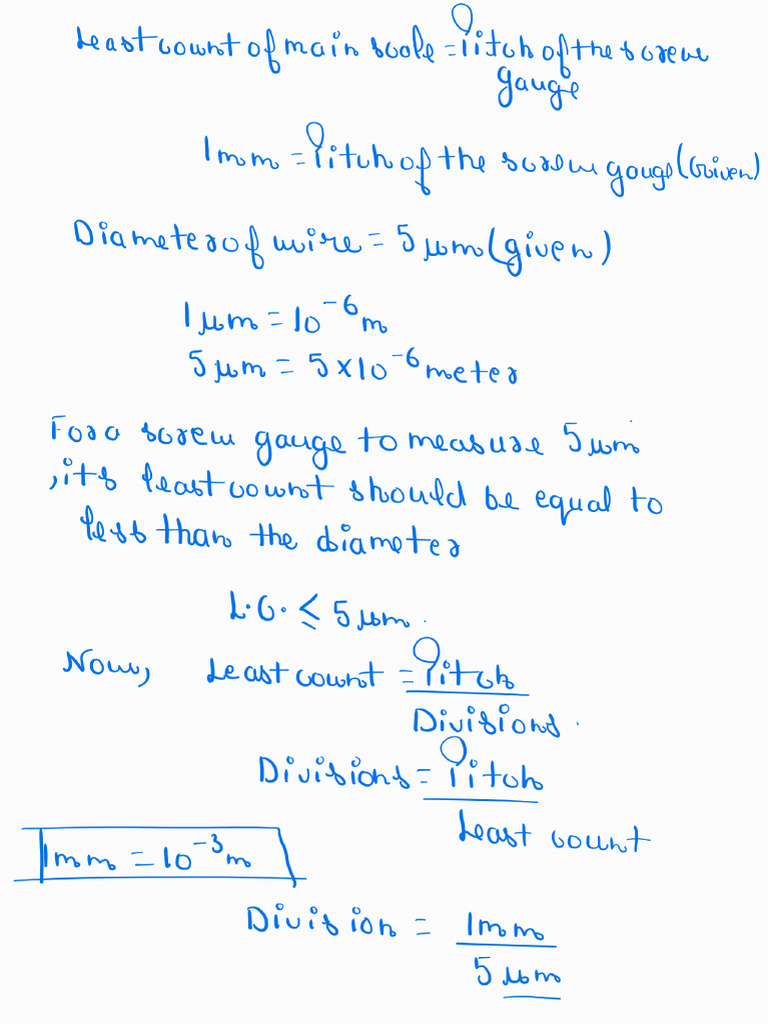 Least count of main scale = Pitch of the screw
gauge
1mm = Pitch of the screw gauge (Given)
Diameter of wire = 5 μm (given)
1 μm = 10⁻⁶ m
5 μm = 5 × 10⁻⁶ meter
For a screw gauge to measure 5 μm
, its least count should be equal to
less than the diameter
L.C. ≤ 5 μm.
Now, Least count = Pitch
Divisions.
Divisions = Pitch
Least count
1mm = 10⁻³ m
Division = 1mm
5 μm